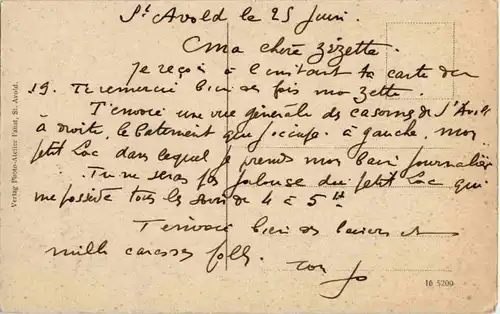 St Avold le 25 Juin.
Oma chère Zézette.
Je reçois à l'instant ta carte du
19. Te remercie bien des fois ma Zette.
T'envoie une vue générale des casernes de St Avold
à droite, le batement que j'occupe. à gauche, mon
petit Lac dans lequel je prends mon bain journalier
Tu ne seras pas jalouse du petit Lac qui
me possède tous les soirs de 4 à 5 H
T'envoie bien des baisers et
mille caresses folles.
ton Jo
Verlag Photo-Atelier Faust, St. Avold.
16 5209